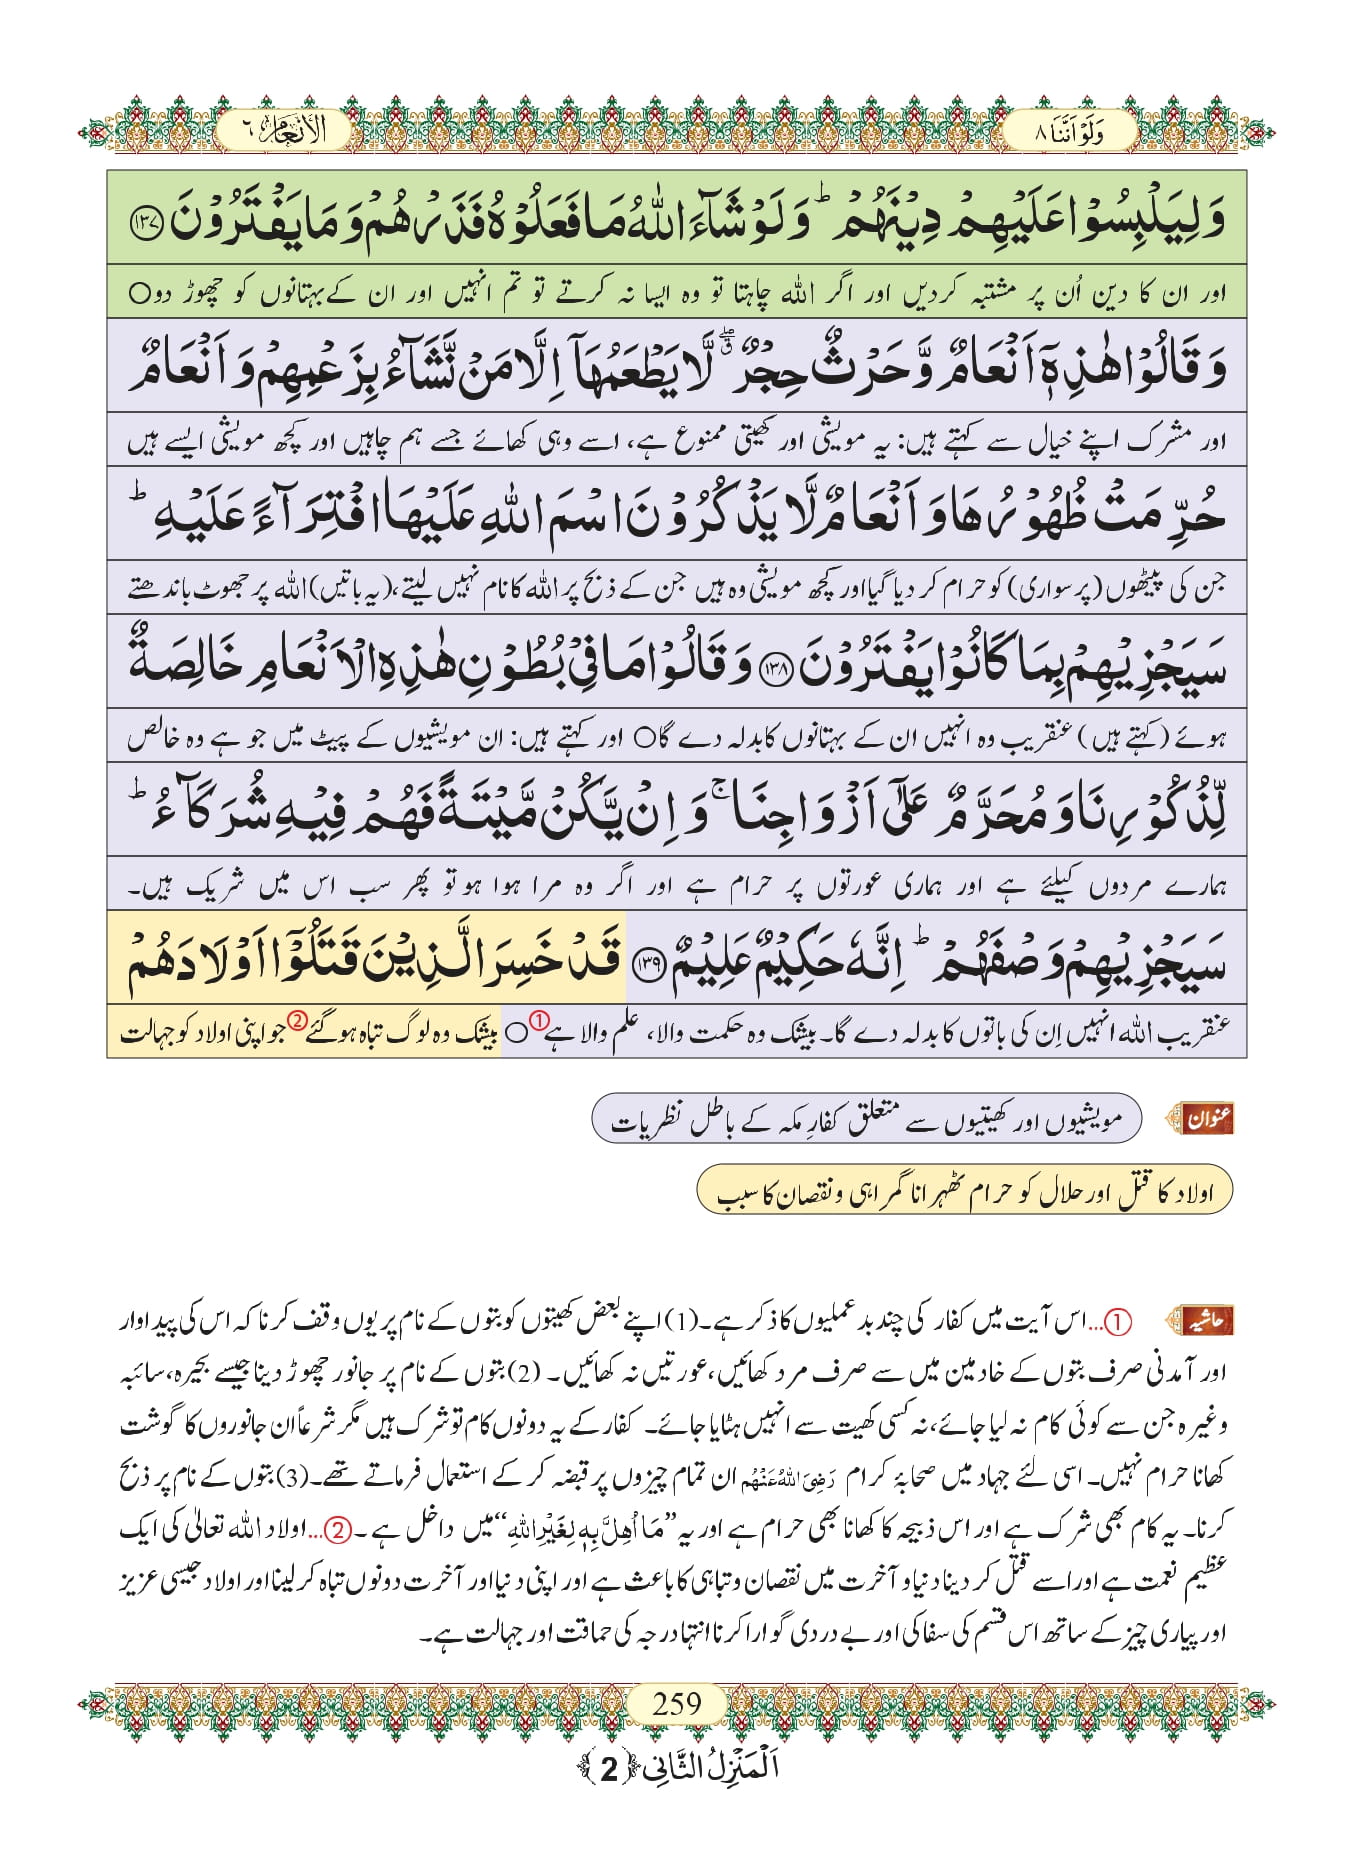 وَلَوْ اَنَّنَا ٨
الْاَنْعَام ٦
وَ لِیَلْبِسُوْا عَلَیْهِمْ دِیْنَهُمْ ؕ وَ لَوْ شَآءَ اللّٰهُ مَا فَعَلُوْهُ فَذَرْهُمْ وَ مَا یَفْتَرُوْنَ ﴿۱۳۷﴾
اور ان کا دین اُن پر مشتبہ کردیں اور اگر اللہ چاہتا تو وہ ایسا نہ کرتے تو تم انہیں اور ان کے بہتانوں کو چھوڑ دو○
وَ قَالُوْا هٰذِهٖۤ اَنْعَامٌ وَّ حَرْثٌ حِجْرٌ ۖۗ لَّا یَطْعَمُهَاۤ اِلَّا مَنْ نَّشَآءُ بِزَعْمِهِمْ وَ اَنْعَامٌ
اور مشرک اپنے خیال سے کہتے ہیں: یہ مویشی اور کھیتی ممنوع ہے، اسے وہی کھائے جسے ہم چاہیں اور کچھ مویشی ایسے ہیں
حُرِّمَتْ ظُهُوْرُهَا وَ اَنْعَامٌ لَّا یَذْكُرُوْنَ اسْمَ اللّٰهِ عَلَیْهَا افْتِرَآءً عَلَیْهِ ؕ
جن کی پیٹھوں (پر سواری) کو حرام کر دیا گیا اور کچھ مویشی وہ ہیں جن کے ذبح پر اللہ کا نام نہیں لیتے، (یہ باتیں) اللہ پر جھوٹ باندھتے
سَیَجْزِیْهِمْ بِمَا كَانُوْا یَفْتَرُوْنَ ﴿۱۳۸﴾ وَ قَالُوْا مَا فِیْ بُطُوْنِ هٰذِهِ الْاَنْعَامِ خَالِصَةٌ
ہوئے (کہتے ہیں) عنقریب وہ انہیں ان کے بہتانوں کا بدلہ دے گا○ اور کہتے ہیں: ان مویشیوں کے پیٹ میں جو ہے وہ خالص
لِّذُكُوْرِنَا وَ مُحَرَّمٌ عَلٰۤى اَزْوَاجِنَا ۚ وَ اِنْ یَّكُنْ مَّیْتَةً فَهُمْ فِیْهِ شُرَكَآءُ ؕ
ہمارے مردوں کیلئے ہے اور ہماری عورتوں پر حرام ہے اور اگر وہ مرا ہوا ہو تو پھر سب اس میں شریک ہیں۔
سَیَجْزِیْهِمْ وَصْفَهُمْ ؕ اِنَّهٗ حَكِیْمٌ عَلِیْمٌ ﴿۱۳۹﴾ قَدْ خَسِرَ الَّذِیْنَ قَتَلُوْۤا اَوْلَادَهُمْ
عنقریب اللہ انہیں اِن کی باتوں کا بدلہ دے گا۔ بیشک وہ حکمت والا، علم والا ہے① ○ بیشک وہ لوگ تباہ ہوگئے② جو اپنی اولاد کو جہالت
عنوان
مویشیوں اور کھیتیوں سے متعلق کفارِ مکہ کے باطل نظریات
اولاد کا قتل اور حلال کو حرام ٹھہرانا گمراہی و نقصان کا سبب
حاشیہ
①...اس آیت میں کفار کی چند بد عملیوں کا ذکر ہے۔(1) اپنے بعض کھیتوں کو بتوں کے نام پر یوں وقف کرنا کہ اس کی پیداوار
اور آمدنی صرف بتوں کے خادمین میں سے صرف مرد کھائیں، عورتیں نہ کھائیں۔ (2) بتوں کے نام پر جانور چھوڑ دینا جیسے بحیرہ، سائبہ
وغیرہ جن سے کوئی کام نہ لیا جائے، نہ کسی کھیت سے انہیں ہٹایا جائے۔ کفار کے یہ دونوں کام تو شرک ہیں مگر شرعاً ان جانوروں کا گوشت
کھانا حرام نہیں۔ اسی لئے جہاد میں صحابۂ کرام رَضِیَ اللہُ عَنْہُم ان تمام چیزوں پر قبضہ کر کے استعمال فرماتے تھے۔(3) بتوں کے نام پر ذبح
کرنا۔ یہ کام بھی شرک ہے اور اس ذبیحہ کا کھانا بھی حرام ہے اور یہ ”مَاۤ اُهِلَّ بِهٖ لِغَیْرِ اللّٰهِ“ میں داخل ہے۔ ②...اولاد اللہ تعالٰی کی ایک
عظیم نعمت ہے اور اسے قتل کر دینا دنیا و آخرت میں نقصان و تباہی کا باعث ہے اور اپنی دنیا اور آخرت دونوں تباہ کرلینا اور اولاد جیسی عزیز
اور پیاری چیز کے ساتھ اس قسم کی سفاکی اور بے دردی گوارا کرنا انتہا درجہ کی حماقت اور جہالت ہے۔
259
اَلْمَنْزِلُ الثَّانِی ﴿2﴾